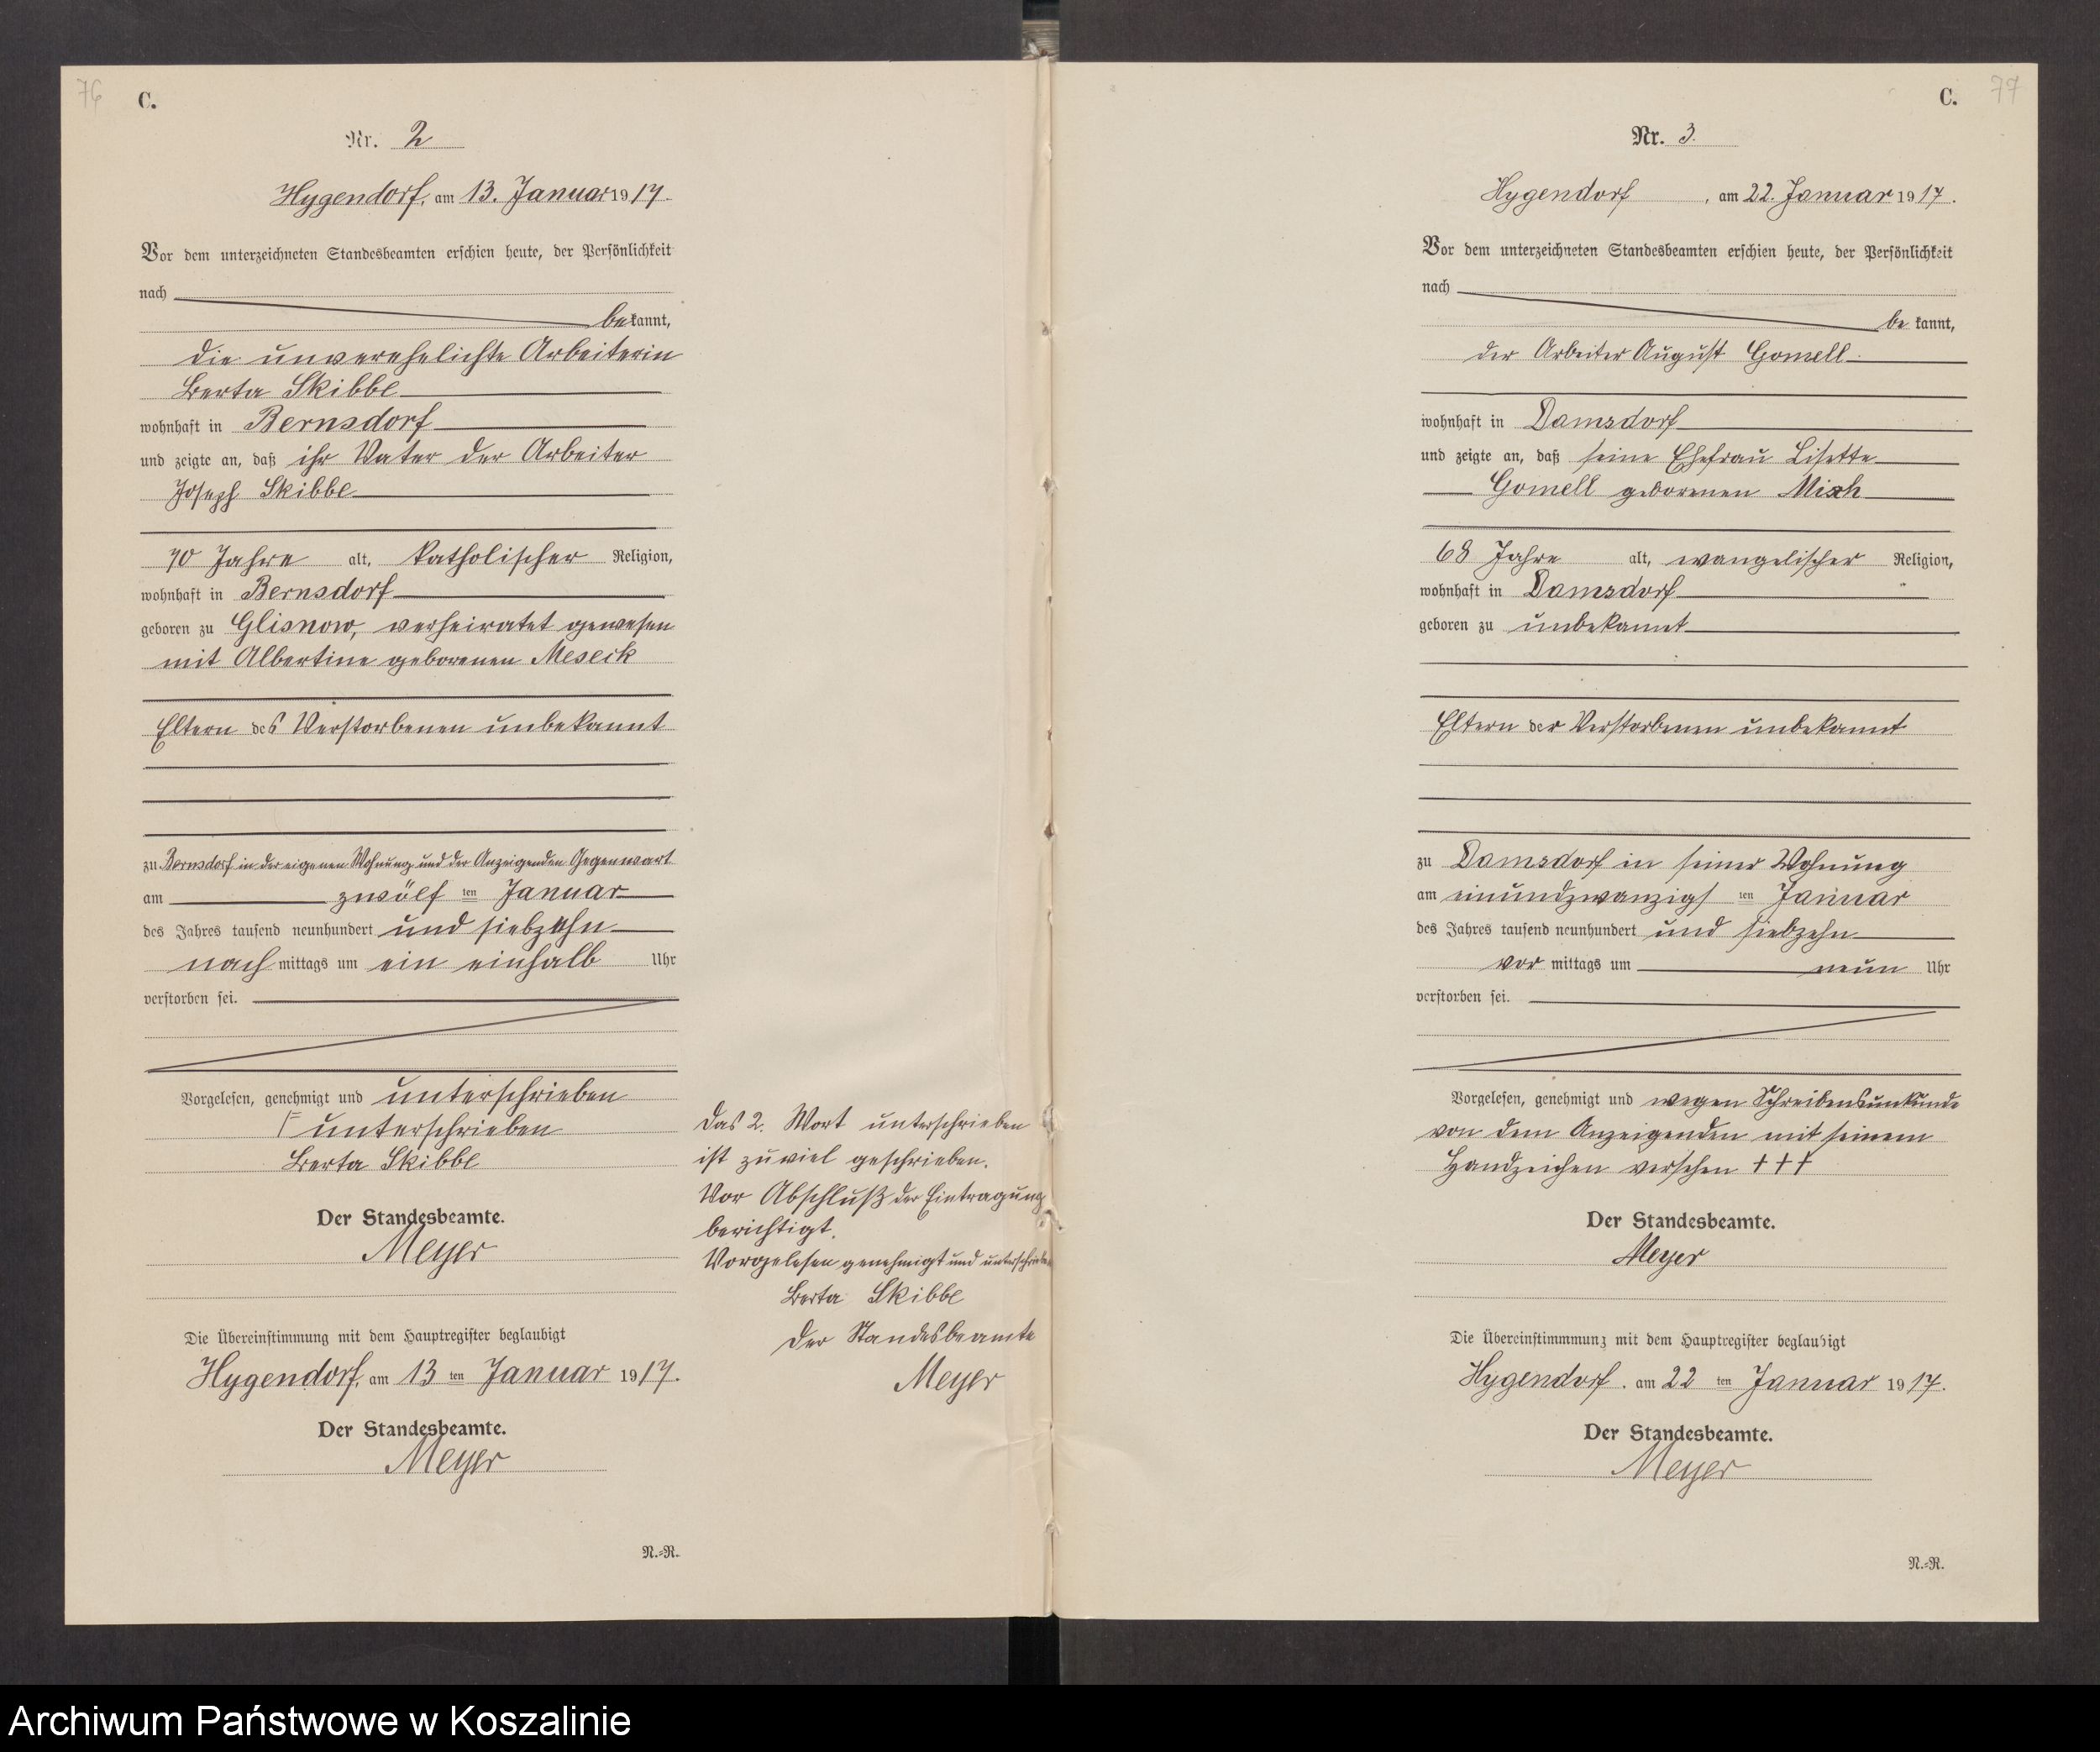 76
C.
Nr. 2
Hygendorf, am 13. Januar 1917.
Vor dem unterzeichneten Standesbeamten erschien heute, der Persönlichkeit
nach
bekannt,
die unverehelichte Arbeiterin
Berta Skibbe
wohnhaft in Bernsdorf
und zeigte an, daß ihr Vater der Arbeiter
Joseph Skibbe
70 Jahre alt, katholischer Religion,
wohnhaft in Bernsdorf
geboren zu Glisnow, verheiratet gewesen
mit Albertine geborenen Meseck
Eltern des Verstorbenen unbekannt
zu Bernsdorf in der eigenen Wohnung und der Anzeigenden Gegenwart
am zwölf ten Januar
des Jahres tausend neunhundert und siebzehn
nach mittags um ein einhalb Uhr
verstorben sei.
Vorgelesen, genehmigt und unterschrieben
unterschrieben
Berta Skibbe
Der Standesbeamte.
Meyer
Die Übereinstimmung mit dem Hauptregister beglaubigt
Hygendorf, am 13 ten Januar 1917.
Der Standesbeamte.
Meyer
N.=R.
das 2. Wort unterschrieben
ist zuviel geschrieben.
Vor Abschluß der Eintragung
berichtigt.
Vorgelesen genehmigt und unterschrieben
Berta Skibbe
der Standesbeamte
Meyer
C.
77
Nr. 3.
Hygendorf, am 22. Januar 1917.
Vor dem unterzeichneten Standesbeamten erschien heute, der Persönlichkeit
nach
be kannt,
der Arbeiter August Gomell
wohnhaft in Damsdorf
und zeigte an, daß seine Ehefrau Lisette
Gomell geborenen Misch
68 Jahre alt, evangelischer Religion,
wohnhaft in Damsdorf
geboren zu unbekannt
Eltern der Verstorbenen unbekannt
zu Damsdorf in seiner Wohnung
am einundzwanzigs ten Januar
des Jahres tausend neunhundert und siebzehn
vor mittags um neun Uhr
verstorben sei.
Vorgelesen, genehmigt und wegen Schreibensunkunde
von dem Anzeigenden mit seinem
Handzeichen versehen +++
Der Standesbeamte.
Meyer
Die Übereinstimmmung mit dem Hauptregister beglaubigt
Hygendorf. am 22 ten Januar 1917.
Der Standesbeamte.
Meyer
N.=R.
Archiwum Państwowe w Koszalinie